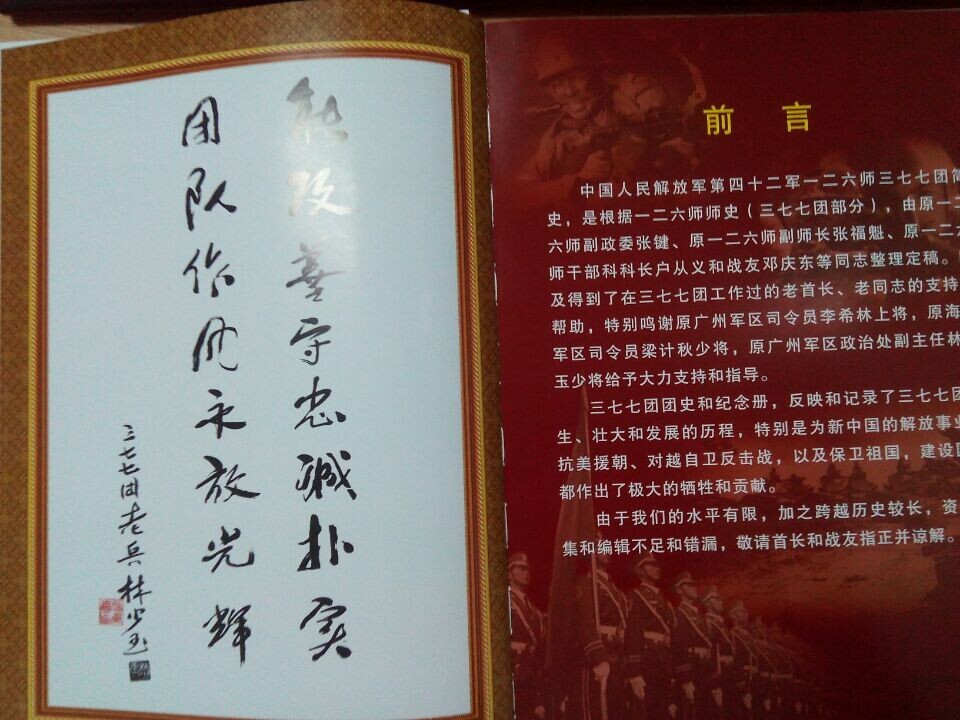 能攻善守忠诚朴实
团队作风永放光辉
三七七团老兵林少玉
前 言
中国人民解放军第四十二军一二六师三七七团简
史，是根据一二六师师史（三七七团部分），由原一二
六师副政委张键、原一二六师副师长张福魁、原一二六
师干部科科长户从义和战友邓庆东等同志整理定稀。
及得到了在三七七团工作过的老首长、老同志的支持
帮助，特别鸣谢原广州军区司令员李希林上将，原海
军区司令员梁计秋少将，原广州军区政治处副主任林
玉少将给予大力支持和指导。
三七七团团史和纪念册，反映和记录了三七七团
生、壮大和发展的历程，特别是为新中国的解放事业
抗美援朝、对越自卫反击战，以及保卫祖国，建设
都作出了极大的牺牲和贡献。
由于我们的水平有限，加之跨越历史较长，资
集和编辑不足和错漏，敬请首长和战友指正并谅解。